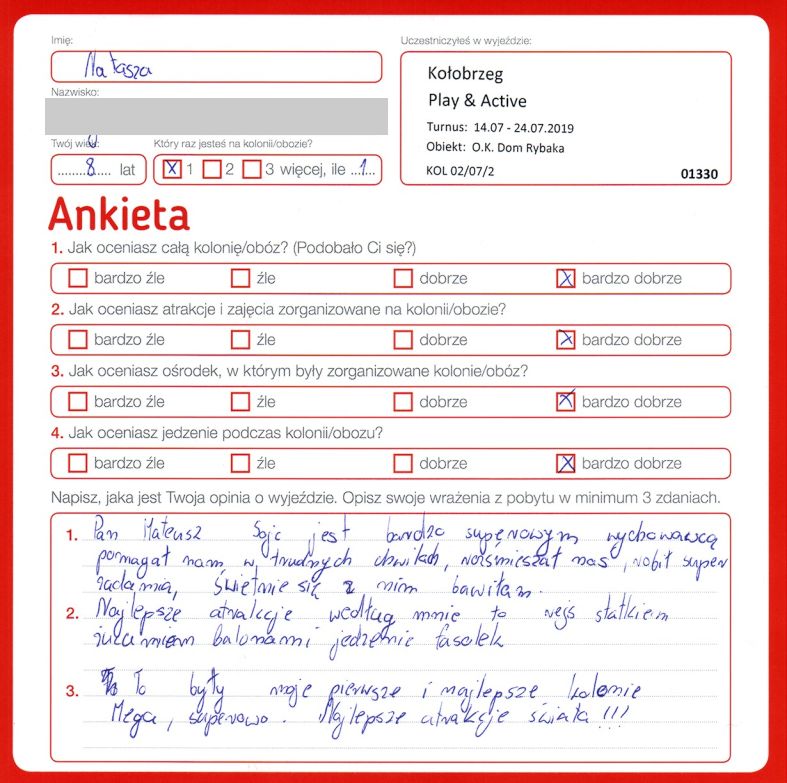 Imię:
Natasza
Nazwisko:
Twój wiek:
8 lat
Który raz jesteś na kolonii/obozie?
X 1 2 3 więcej, ile ...1...
Uczestniczyłeś w wyjeździe:
Kołobrzeg
Play & Active
Turnus: 14.07 - 24.07.2019
Obiekt: O.K. Dom Rybaka
KOL 02/07/2 01330
Ankieta
1. Jak oceniasz całą kolonię/obóz? (Podobało Ci się?)
bardzo źle źle dobrze X bardzo dobrze
2. Jak oceniasz atrakcje i zajęcia zorganizowane na kolonii/obozie?
bardzo źle źle dobrze X bardzo dobrze
3. Jak oceniasz ośrodek, w którym były zorganizowane kolonie/obóz?
bardzo źle źle dobrze X bardzo dobrze
4. Jak oceniasz jedzenie podczas kolonii/obozu?
bardzo źle źle dobrze X bardzo dobrze
Napisz, jaka jest Twoja opinia o wyjeździe. Opisz swoje wrażenia z pobytu w minimum 3 zdaniach.
1. Pan Mateusz jest bardzo supęrowym wychowawcą
pomagał nam w trudnych chwilach, rozśmieszał nas, robił super
zadania, świetnie się z nim bawiłam.
2. Najlepsze atrakcje według mnie to rejs statkiem
żucaniem balonami jedzenie fasolek
3. To były moje pierwsze i najlepsze kolonie
Mega, superowo. Najlepsze atrakcje świata!!!